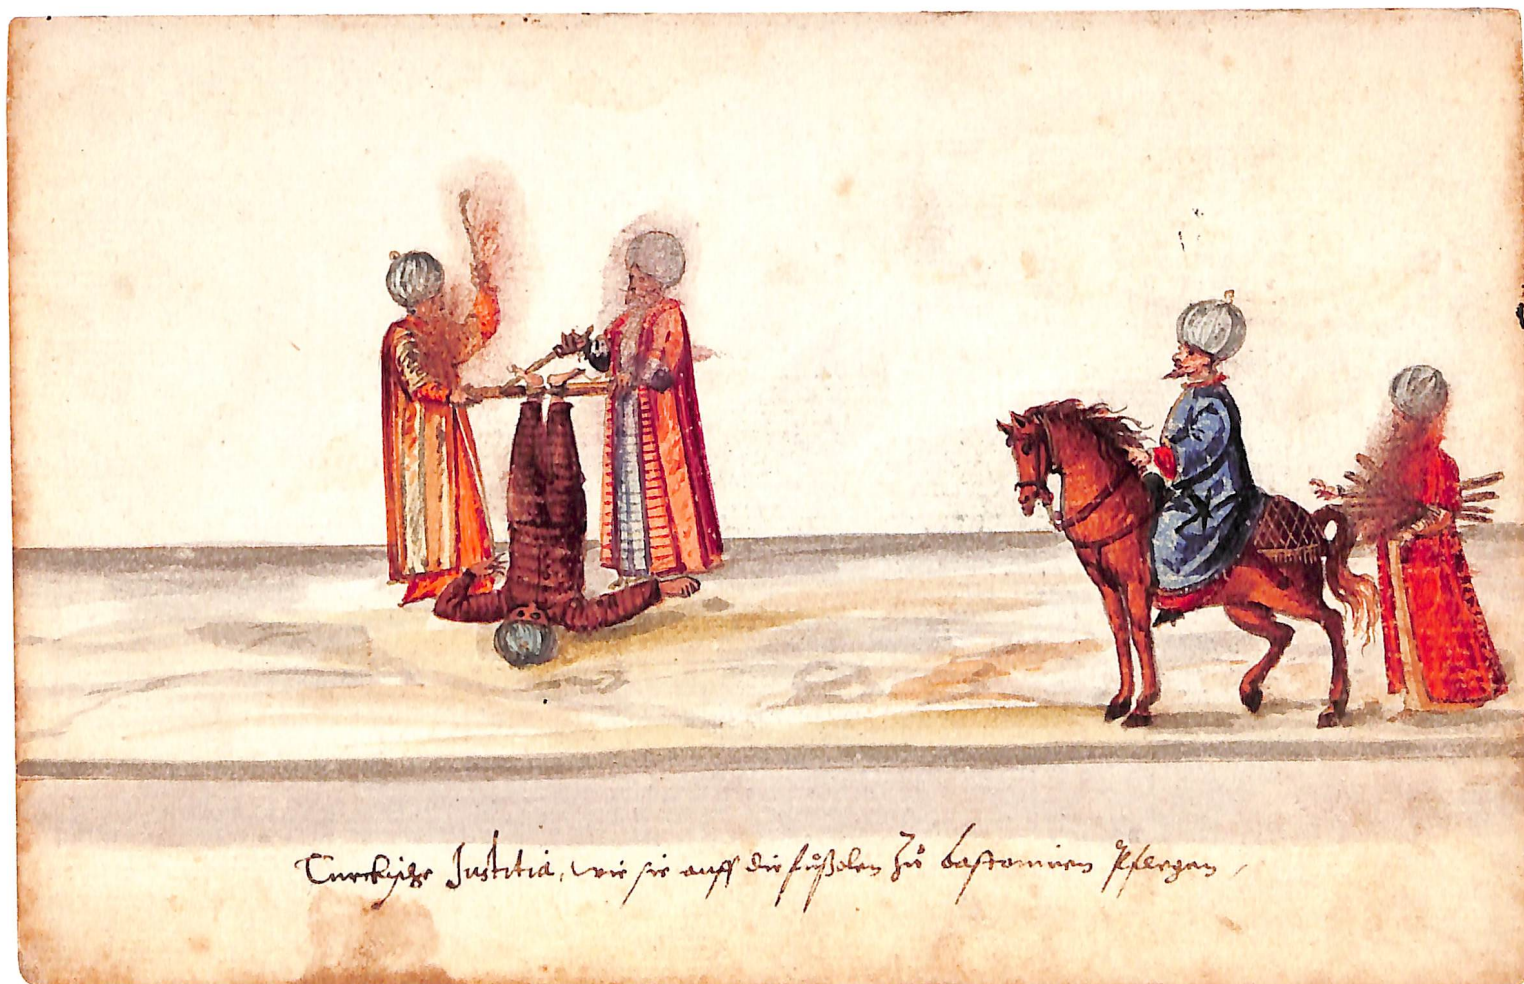 Turckische Justitia, wie sie auff die fůßolen zů bastonnien Pflegen,